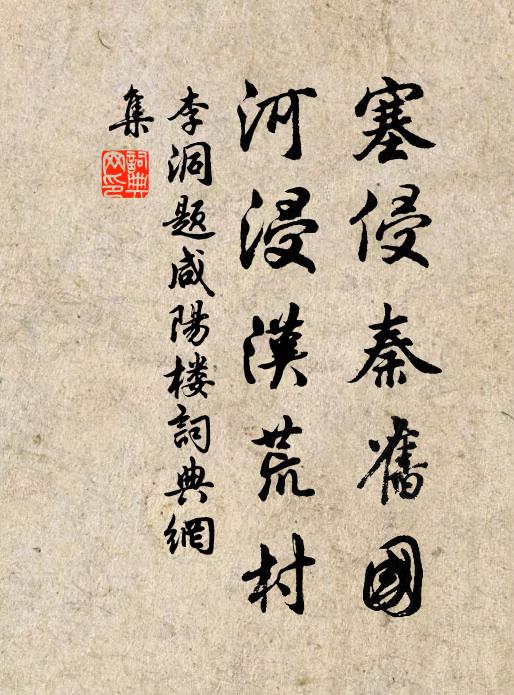 塞侵秦舊國
河浸漢荒村
李洞題咸陽楼詞典網
集
詞典
网印